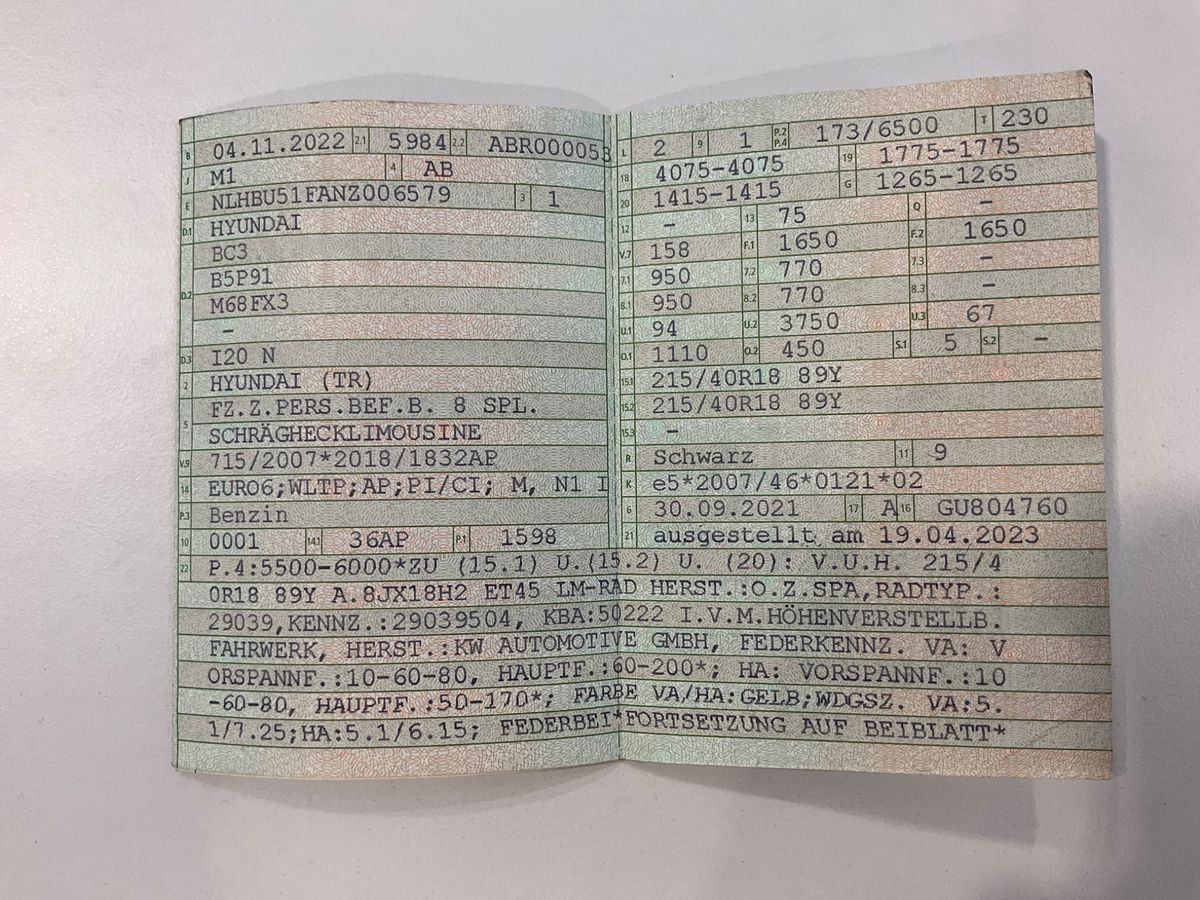 B 04.11.2022 2.1 5984 2.2 ABR000053
J M1 4 AB
E NLHBU51FANZ006579 3 1
D.1 HYUNDAI
BC3
D.2 B5P91
M68FX3
–
D.3 I20 N
2 HYUNDAI (TR)
FZ.Z.PERS.BEF.B. 8 SPL.
5 SCHRÄGHECKLIMOUSINE
V.9 715/2007*2018/1832AP
14 EURO6;WLTP;AP;PI/CI; M, N1 I
P.3 Benzin
10 0001 14.1 36AP P.1 1598
L 2 9 1 P.2 P.4 173/6500 T 230
18 4075-4075 19 1775-1775
20 1415-1415 G 1265-1265
12 – 13 75 Q –
V.7 158 F.1 1650 F.2 1650
7.1 950 7.2 770 7.3 –
8.1 950 8.2 770 8.3 –
U.1 94 U.2 3750 U.3 67
O.1 1110 O.2 450 S.1 5 S.2 –
15.1 215/40R18 89Y
15.2 215/40R18 89Y
15.3 –
R Schwarz 11 9
K e5*2007/46*0121*02
6 30.09.2021 17 A 16 GU804760
21 ausgestellt am 19.04.2023
22 P.4:5500-6000*ZU (15.1) U.(15.2) U. (20): V.U.H. 215/4
0R18 89Y A.8JX18H2 ET45 LM-RAD HERST.:O.Z.SPA,RADTYP.:
29039,KENNZ.:29039504, KBA:50222 I.V.M.HÖHENVERSTELLB.
FAHRWERK, HERST.:KW AUTOMOTIVE GMBH, FEDERKENNZ. VA: V
ORSPANNF.:10-60-80, HAUPTF.:60-200*; HA: VORSPANNF.:10
-60-80, HAUPTF.:50-170*; FARBE VA/HA:GELB;WDGSZ. VA:5.
1/7.25;HA:5.1/6.15; FEDERBEI*FORTSETZUNG AUF BEIBLATT*